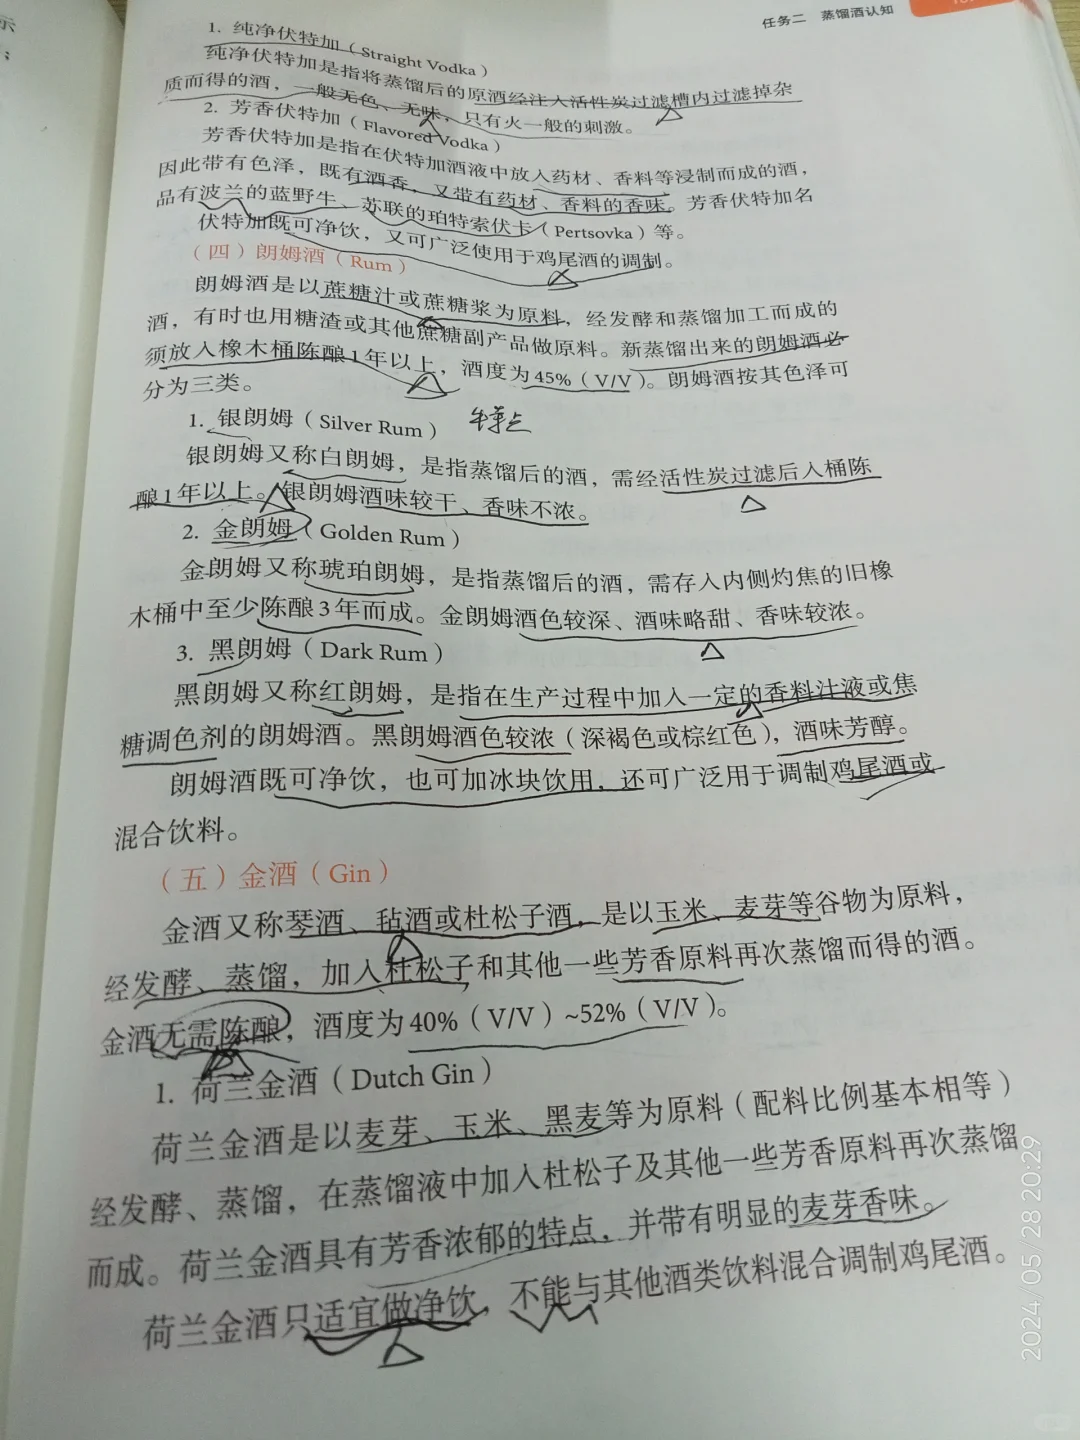 任务二 蒸馏酒认知
1. 纯净伏特加（Straight Vodka）
纯净伏特加是指将蒸馏后的原酒经注入活性炭过滤槽内过滤掉杂
质而得的酒，一般无色、无味，只有火一般的刺激。
2. 芳香伏特加（Flavored Vodka）
芳香伏特加是指在伏特加酒液中放入药材、香料等浸制而成的酒，
因此带有色泽，既有酒香，又带有药材、香料的香味。芳香伏特加名
品有波兰的蓝野牛、苏联的珀特索伏卡（Pertsovka）等。
伏特加既可净饮，又可广泛使用于鸡尾酒的调制。
（四）朗姆酒（Rum）
朗姆酒是以蔗糖汁或蔗糖浆为原料，经发酵和蒸馏加工而成的
酒，有时也用糖渣或其他蔗糖副产品做原料。新蒸馏出来的朗姆酒必
须放入橡木桶陈酿1年以上，酒度为45%（V/V）。朗姆酒按其色泽可
分为三类。
1. 银朗姆（Silver Rum）
银朗姆又称白朗姆，是指蒸馏后的酒，需经活性炭过滤后入桶陈
酿1年以上。银朗姆酒味较干、香味不浓。
2. 金朗姆（Golden Rum）
金朗姆又称琥珀朗姆，是指蒸馏后的酒，需存入内侧灼焦的旧橡
木桶中至少陈酿3年而成。金朗姆酒色较深、酒味略甜、香味较浓。
3. 黑朗姆（Dark Rum）
黑朗姆又称红朗姆，是指在生产过程中加入一定的香料汁液或焦
糖调色剂的朗姆酒。黑朗姆酒色较浓（深褐色或棕红色），酒味芳醇。
朗姆酒既可净饮，也可加冰块饮用，还可广泛用于调制鸡尾酒或
混合饮料。
（五）金酒（Gin）
金酒又称琴酒、毡酒或杜松子酒，是以玉米、麦芽等谷物为原料，
经发酵、蒸馏，加入杜松子和其他一些芳香原料再次蒸馏而得的酒。
金酒无需陈酿，酒度为40%（V/V）~52%（V/V）。
1. 荷兰金酒（Dutch Gin）
荷兰金酒是以麦芽、玉米、黑麦等为原料（配料比例基本相等）
经发酵、蒸馏，在蒸馏液中加入杜松子及其他一些芳香原料再次蒸馏
而成。荷兰金酒具有芳香浓郁的特点，并带有明显的麦芽香味。
荷兰金酒只适宜做净饮，不能与其他酒类饮料混合调制鸡尾酒。
2024/05/28 20:29